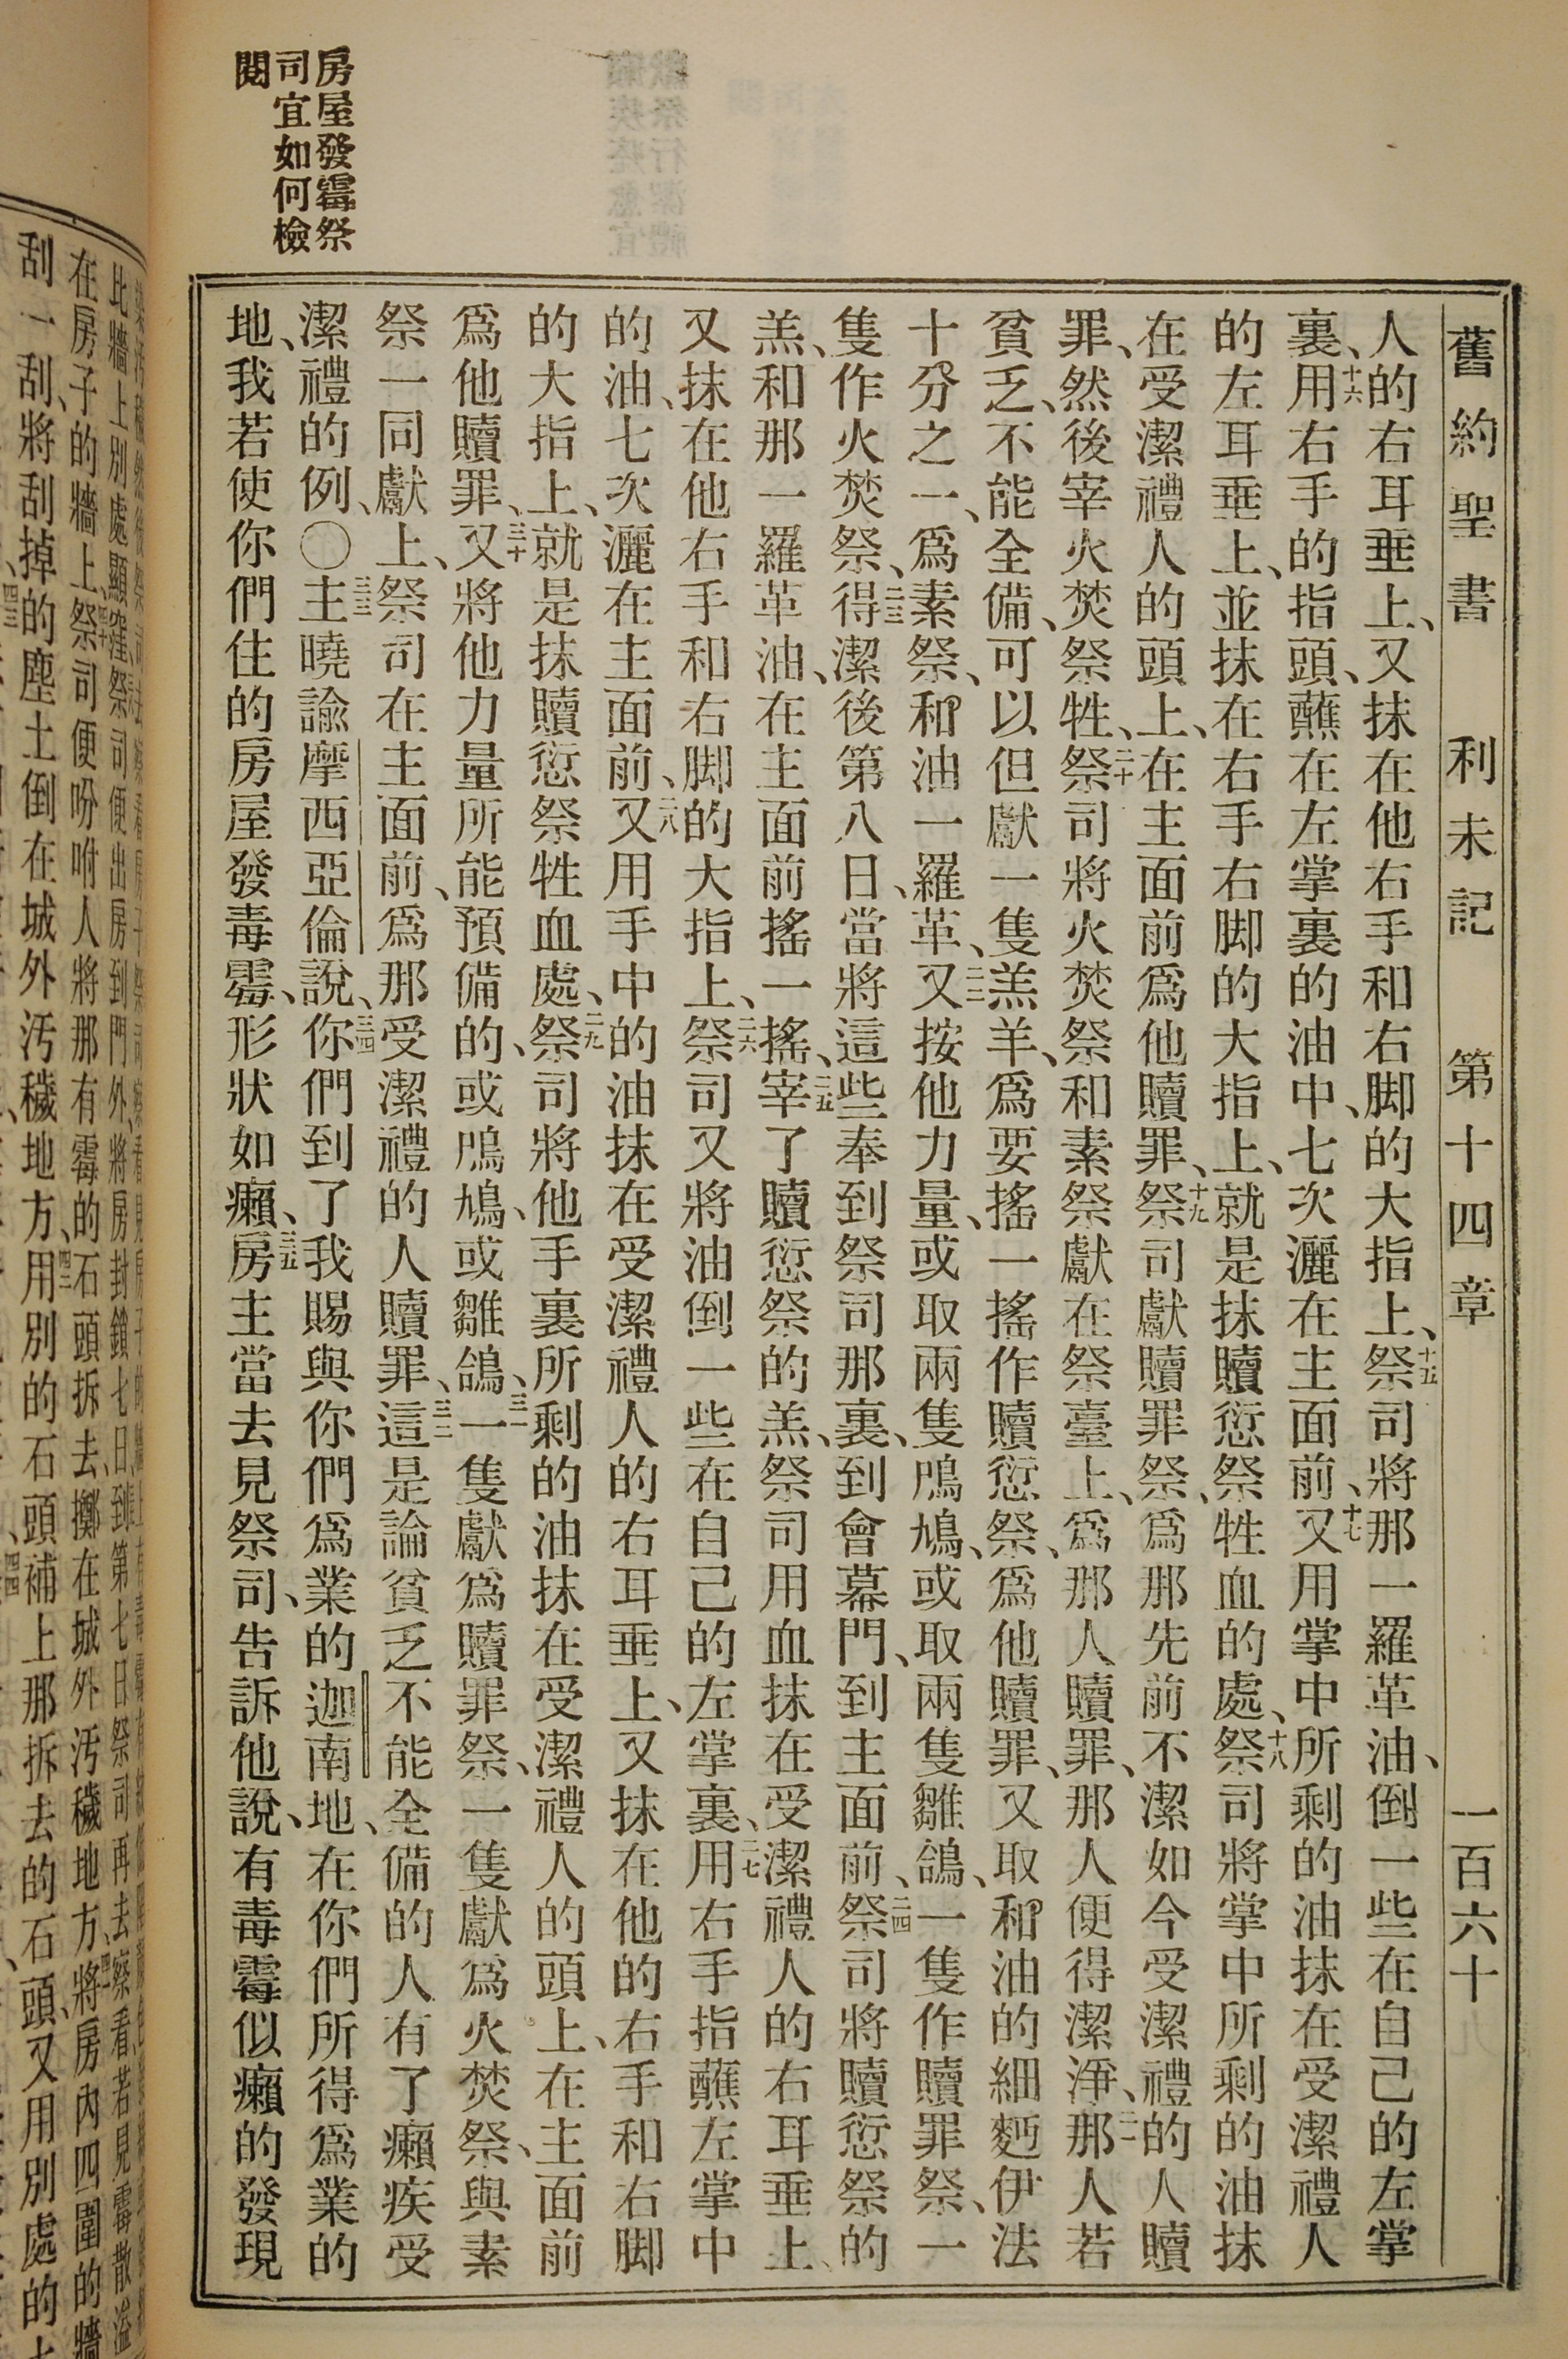 舊約聖書 利未記 第十四章 一百六十
人的右耳垂上、又抹在他右手和右脚的大指上、十五祭司將那一羅革油、倒一些在自己的左掌
裏、十六用右手的指頭、蘸在左掌裏的油中、七次灑在主面前、十七又用掌中所剩的油抹在受潔禮人
的左耳垂上、並抹在右手右脚的大指上、就是抹贖愆祭牲血的處、十八祭司將掌中所剩的油抹
在受潔禮人的頭上、在主面前爲他贖罪、十九祭司獻贖罪祭、爲那先前不潔如今受潔禮的人贖
罪、然後宰火焚祭牲、二十祭司將火焚祭和素祭獻在祭臺上、爲那人贖罪、那人便得潔淨、二一那人若
貧乏、不能全備、可以但獻一隻羔羊、爲要搖一搖作贖愆祭、爲他贖罪、又取和油的細麪伊法
十分之一、爲素祭、和油一羅革、二二又按他力量、或取兩隻鳲鳩、或取兩隻雛鴿、一隻作贖罪祭、一
隻作火焚祭、二三得潔後第八日、當將這些奉到祭司那裏、到會幕門、到主面前、二四祭司將贖愆祭的
羔、和那一羅革油、在主面前搖一搖、二五宰了贖愆祭的羔、祭司用血抹在受潔禮人的右耳垂上、
又抹在他右手和右脚的大指上、二六祭司又將油倒一些在自己的左掌裏、二七用右手指蘸左掌中
的油、七次灑在主面前、二八又用手中的油抹在受潔禮人的右耳垂上、又抹在他的右手和右脚
的大指上、就是抹贖愆祭牲血處、二九祭司將他手裏所剩的油抹在受潔禮人的頭上、在主面前
爲他贖罪、三十又將他力量所能預備的、或鳲鳩、或雛鴿、三一一隻獻爲贖罪祭、一隻獻爲火焚祭、與素
祭一同獻上、祭司在主面前、爲那受潔禮的人贖罪、三二這是論貧乏不能全備的人有了癩疾受
潔禮的例、〇三三主曉諭摩西亞倫說、三四你們到了我賜與你們爲業的迦南地、在你們所得爲業的
地、我若使你們住的房屋發毒霉、形狀如癩、三五房主當去見祭司、告訴他說、有毒霉似癩的發現
房屋發霉祭
司宜如何檢
閱
在房子的牆上、祭司便吩咐人將那有霉的石頭拆去、擲在城外汚穢地方、將房內四圍的牆
刮一刮、將刮掉的塵土倒在城外汚穢地方、四二用別的石頭補上那拆去的石頭、又用別處的